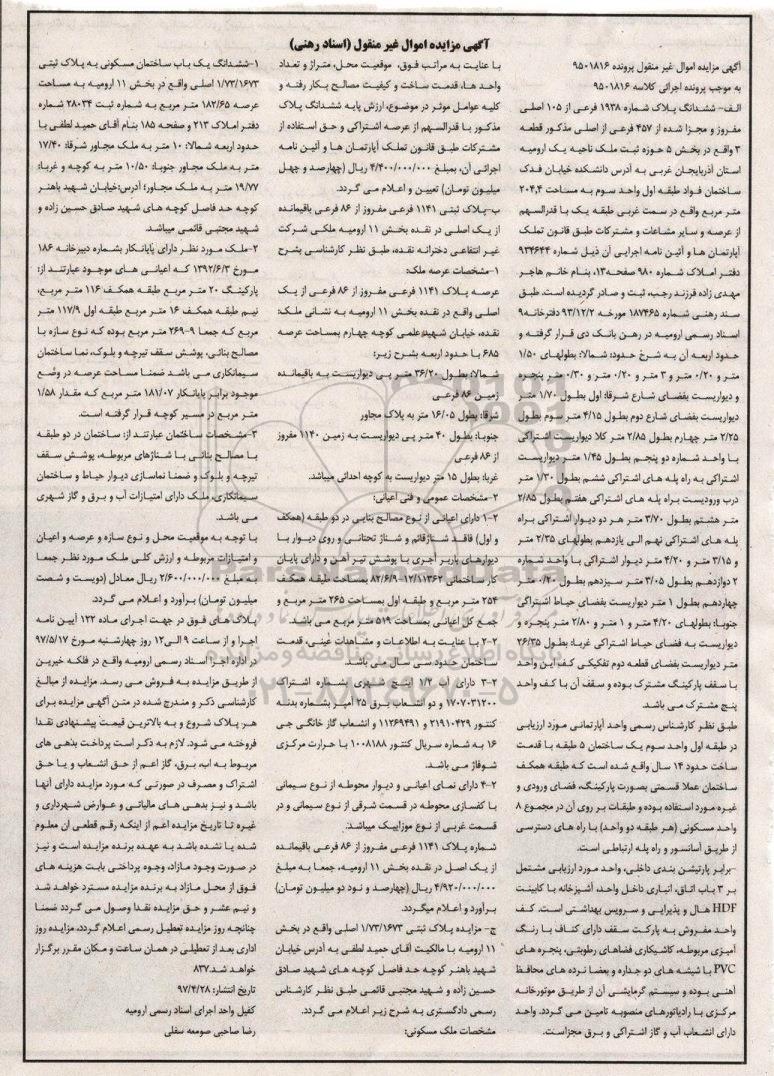 آگهی مزایده اموال غیر منقول (اسناد رهنی)
آگهی مزایده اموال غیر منقول پرونده ۹۵۰۱۸۱۶
به موجب پرونده اجرائی کلاسه ۹۵۰۱۸۱۶
الف- ششدانگ پلاک شماره ۱۹۳۸ فرعی از ۱۰۵ اصلی
مفروز و مجزا شده از ۴۵۷ فرعی از اصلی مذکور قطعه
۳ واقع در بخش ۵ حوزه ثبت ملک ناحیه یک ارومیه
استان آذربایجان غربی به آدرس دانشکده خیابان فدک
ساختمان فواد طبقه اول واحد سوم به مساحت ۲۰۴,۴
متر مربع واقع در سمت غربی طبقه یک با قدرالسهم
از عرصه و سایر مشاعات و مشترکات طبق قانون تملک
آپارتمان ها و آئین نامه اجرایی آن ذیل شماره ۹۳۴۶۴۴
دفتر املاک شماره ۹۸۰ صفحه۱۳، بنام خانم هاجر
مهدی زاده فرزند رجب، ثبت و صادر گردیده است. طبق
سند رهنی شماره ۱۸۷۴۶۵ مورخه ۹۳/۱۲/۲ دفترخانه۹
اسناد رسمی ارومیه در رهن بانک دی قرار گرفته و
حدود اربعه آن به شرح حدود: شمالا: بطولهای ۱/۵۰
متر و ۰/۲۰ متر و ۳ متر و ۰/۲۰ متر و ۰/۳۰ متر پنجره
و دیواریست بفضای شارع شرقا: اول بطول ۱/۷۰ متر
دیواریست بفضای شارع دوم بطول ۴/۱۵ متر سوم بطول
۲/۲۵ متر چهارم بطول ۲/۸۵ متر کلا دیواریست اشتراکی
با واحد شماره دو پنجم بطول ۱/۴۵ متر دیواریست
اشتراکی به راه پله های اشتراکی ششم بطول ۱/۳۰ متر
درب ورودیست براه پله های اشتراکی هفتم بطول ۲/۸۵
متر هشتم بطول ۳/۷۰ متر هر دو دیوار اشتراکی براه
پله های اشتراکی نهم الی یازدهم بطولهای ۲/۳۵ متر
و ۳/۱۵ متر و ۴/۲۰ متر دیوار اشتراکی با واحد شماره
۲ دوازدهم بطول ۳/۰۵ متر سیزدهم بطول ۰/۲۰ متر
چهاردهم بطول ۱ متر دیواریست بفضای حیاط اشتراکی
جنوبا: بطولهای ۴/۲۰ متر و ۱ متر و ۲/۸۰ متر پنجره و
دیواریست به فضای حیاط اشتراکی غربا: بطول ۲۶/۳۵
متر دیواریست بفضای قطعه دوم تفکیکی کف این واحد
با سقف پارکینگ مشترک بوده و سقف آن با کف واحد
پنج مشترک می باشد.
طبق نظر کارشناس رسمی واحد آپارتمانی مورد ارزیابی
در طبقه اول واحد سوم یک ساختمان ۵ طبقه با قدمت
ساخت حدود ۱۴ سال واقع شده است که طبقه همکف
ساختمان عملا قسمتی بصورت پارکینگ، فضای ورودی و
غیره مورد استفاده بوده و طبقات بر روی آن در مجموع ۸
واحد مسکونی (هر طبقه دو واحد) با راه های دسترسی
از طریق آسانسور و راه پله ارتباطی است.
-برابر پارتیشن بندی داخلی، واحد مورد ارزیابی مشتمل
بر ۳ باب اتاق، انباری داخل واحد آشپزخانه با کابینت
HDF هال و پذیرایی و سرویس بهداشتی است. کف
واحد مفروش به پارکت سقف دارای کناف با رنگ
آمیزی مربوطه، کاشیکاری فضاهای رطوبتی، پنجره های
PVC با شیشه های دو جداره و بعضا نرده های محافظ
آهنی بوده و سیستم گرمایشی آن از طریق موتورخانه
مرکزی با رادیاتورهای منصوبه تامین می گردد. واحد
دارای انشعاب آب و گاز اشتراکی و برق مجزاست.
با عنایت به مراتب فوق، موقعیت محل، متراژ و تعداد
واحد ها، قدمت ساخت و کیفیت مصالح بکار رفته و
کلیه عوامل موثر در موضوع، ارزش پایه ششدانگ پلاک
مذکور با قدرالسهم از عرصه اشتراکی و حق استفاده از
مشترکات طبق قانون تملک آپارتمان ها و آئین نامه
اجرائی آن، بمبلغ ۴/۴۰۰/۰۰۰/۰۰۰ ریال (چهارصد و چهل
میلیون تومان) تعیین و اعلام می گردد.
ب-پلاک ثبتی ۱۱۴۱ فرعی مفروز از ۸۶ فرعی باقیمانده
از یک اصلی در نقده بخش ۱۱ ارومیه ملکی شرکت
غیر انتفاعی دخترانه نقده، طبق نظر کارشناسی بشرح
۱-مشخصات عرصه ملک:
عرصه پلاک ۱۱۴۱ فرعی مفروز از ۸۶ فرعی از یک
اصلی واقع در نقده بخش ۱۱ ارومیه به نشانی ملک:
نقده، خیابان شهید علمی کوچه چهارم بمساحت عرصه
۶۸۵ با حدود اربعه بشرح زیر:
شمالا: بطول ۳۶/۲۰ متر پی دیواریست به باقیمانده
زمین ۸۶ فرعی
شرقا: بطول ۱۶/۰۵ متر به پلاک مجاور
جنوبا: بطول ۴۰ متر پی دیواریست به زمین ۱۱۴۰ مفروز
از ۸۶ فرعی
غربا: بطول ۱۵ متر دیواریست به کوچه احداثی میباشد.
۲-مشخصات عمومی و فنی اعیانی:
۲-۱ دارای اعیانی از نوع مصالح بنایی در دو طبقه (همکف
و اول) فاقد شناژ قائم و شناژ تحتانی و روی دیوار با
دیوارهای باربر آجری با پوشش تیر آهن و دارای پایان
کار ساختمانی ۱۲/۱۱۳۶۲-۸۲/۶/۹ بمساحت طبقه همکف
۲۵۴ متر مربع و طبقه اول بمساحت ۲۶۵ متر مربع و
جمع کل اعیانی بمساحت ۵۱۹ متر مربع می باشد.
۲-۲ با عنایت به اطلاعات و مشاهدات عینی، قدمت
ساختمان حدود سی سال می باشد.
۲-۳ دارای آب ۱/۲ اینچ شهری بشماره اشتراک
۱۷۰۷۰۳۱۲۰۰ و دو انشعاب برق ۲۵ آمپر بشماره بدنه
کنتور ۲۱۹۱۰۴۲۹ و ۱۱۲۶۹۴۹۱ و انشعاب گاز خانگی جی
۱۶ به شماره سریال کنتور ۱۰۰۸۱۸۸ با حرارت مرکزی
شوفاژ می باشد.
۲-۴ دارای نمای اعیانی و دیوار محوطه از نوع سیمانی
با کفسازی محوطه در قسمت شرقی از نوع سیمانی و در
قسمت غربی از نوع موزاییک میباشد.
شماره پلاک ۱۱۴۱ فرعی مفروز از ۸۶ فرعی باقیمانده
از یک اصل در نقده بخش ۱۱ ارومیه، جمعا به مبلغ
۴/۹۲۰/۰۰۰/۰۰۰ ریال (چهارصد و نود دو میلیون تومان)
برآورد و اعلام میگردد.
ج- مزایده پلاک ثبتی ۱/۷۳/۱۶۷۳ اصلی واقع در بخش
۱۱ ارومیه با مالکیت آقای حمید لطفی به آدرس خیابان
شهید باهنر کوچه حد فاصل کوچه های شهید صادق
حسین زاده و شهید مجتبی قائمی طبق نظر کارشناس
رسمی دادگستری به شرح زیر اعلام می گردد.
مشخصات ملک مسکونی:
۱-ششدانگ یک باب ساختمان مسکونی به پلاک ثبتی
۱/۷۳/۱۶۷۳ اصلی واقع در بخش ۱۱ ارومیه به مساحت
عرصه ۱۸۲/۶۵ متر مربع به شماره ثبت ۲۸۰۳۴ شماره
دفتر املاک ۲۱۳ و صفحه ۱۸۵ بنام آقای حمید لطفی با
حدود اربعه شمالا: ۱۰ متر به ملک مجاور شرقا: ۱۷/۴۰
متر به ملک مجاور جنوبا: ۱۰/۵۰ متر به کوچه و غربا:
۱۹/۷۷ متر به ملک مجاور؛ آدرس:خیابان شهید باهنر
کوچه حد فاصل کوچه های شهید صادق حسین زاده و
شهید مجتبی قائمی میباشد.
۲-ملک مورد نظر دارای پایانکار بشماره دبیرخانه ۱۸۶
مورخ ۱۳۹۲/۶/۳ که اعیانی های موجود عبارتند از:
پارکینگ ۲۰ متر مربع طبقه همکف ۱۱۶ متر مربع،
نیم طبقه همکف ۱۶ متر مربع طبقه اول ۱۱۷/۹ متر
مربع که جمعا ۲۶۹-۹ متر مربع بوده که نوع سازه با
مصالح بنائی، پوشش سقف تیرچه و بلوک، نما ساختمان
سیمانکاری می باشد ضمنا مساحت عرصه در وضع
موجود برابر پایانکار ۱۸۱/۰۷ متر مربع که مقدار ۱/۵۸
متر مربع در مسیر کوچه قرار گرفته است.
۳-مشخصات ساختمان عبارتند از: ساختمان در دو طبقه
با مصالح بنائی با شناژهای مربوطه، پوشش سقف
تیرچه و بلوک و ضمنا نماسازی دیوار حیاط و ساختمان
سیمانکاری، ملک دارای امتیازات آب و برق و گاز شهری
می باشد.
با توجه به موقعیت محل و نوع سازه و عرصه و اعیان
و امتیازات مربوطه و ارزش کلی ملک مورد نظر جمعا
به مبلغ ۲/۶۰۰/۰۰۰/۰۰۰ ریال معادل (دویست و شصت
میلیون تومان) برآورد و اعلام می گردد.
پلاک های فوق در جهت اجرای ماده ۱۲۲ آیین نامه
اجرا و از ساعت ۹ الی۱۲ روز چهارشنبه مورخ ۹۷/۵/۱۷
در اداره اجرا اسناد رسمی ارومیه واقع در فلکه خیرین
از طریق مزایده به فروش می رسد. مزایده از مبالغ
کارشناسی ذکر و مندرج شده در متن آگهی مزایده برای
هر پلاک شروع و به بالاترین قیمت پیشنهادی نقدا
فروخته می شود. لازم به ذکر است پرداخت بدهی های
مربوط به آب، برق، گاز اعم از حق انشعاب و یا حق
اشتراک و مصرف در صورتی که مورد مزایده دارای آنها
باشد و نیز بدهی های مالیاتی و عوارض شهرداری و
غیره تا تاریخ مزایده اعم از اینکه رقم قطعی آن معلوم
شده یا نشده باشد به عهده برنده مزایده است و نیز
در صورت وجود مازاد، وجوه پرداختی بابت هزینه های
فوق از محل مازاد به برنده مزایده مسترد خواهد شد
و نیم عشر و حق مزایده نقدا وصول می گردد ضمنا
چنانچه روز مزایده تعطیل رسمی اعلام گردد، مزایده روز
اداری بعد از تعطیلی در همان ساعت و مکان مقرر برگزار
خواهد شد.۸۳۷
تاریخ انتشار: ۹۷/۴/۲۸
کفیل واحد اجرای اسناد رسمی ارومیه
رضا صاحبی صومعه سفلی
پایگاه اطلاع رسانی مناقصه و مزایده
۰۲۱-۸۸۳۴۹۶۷۰-۵